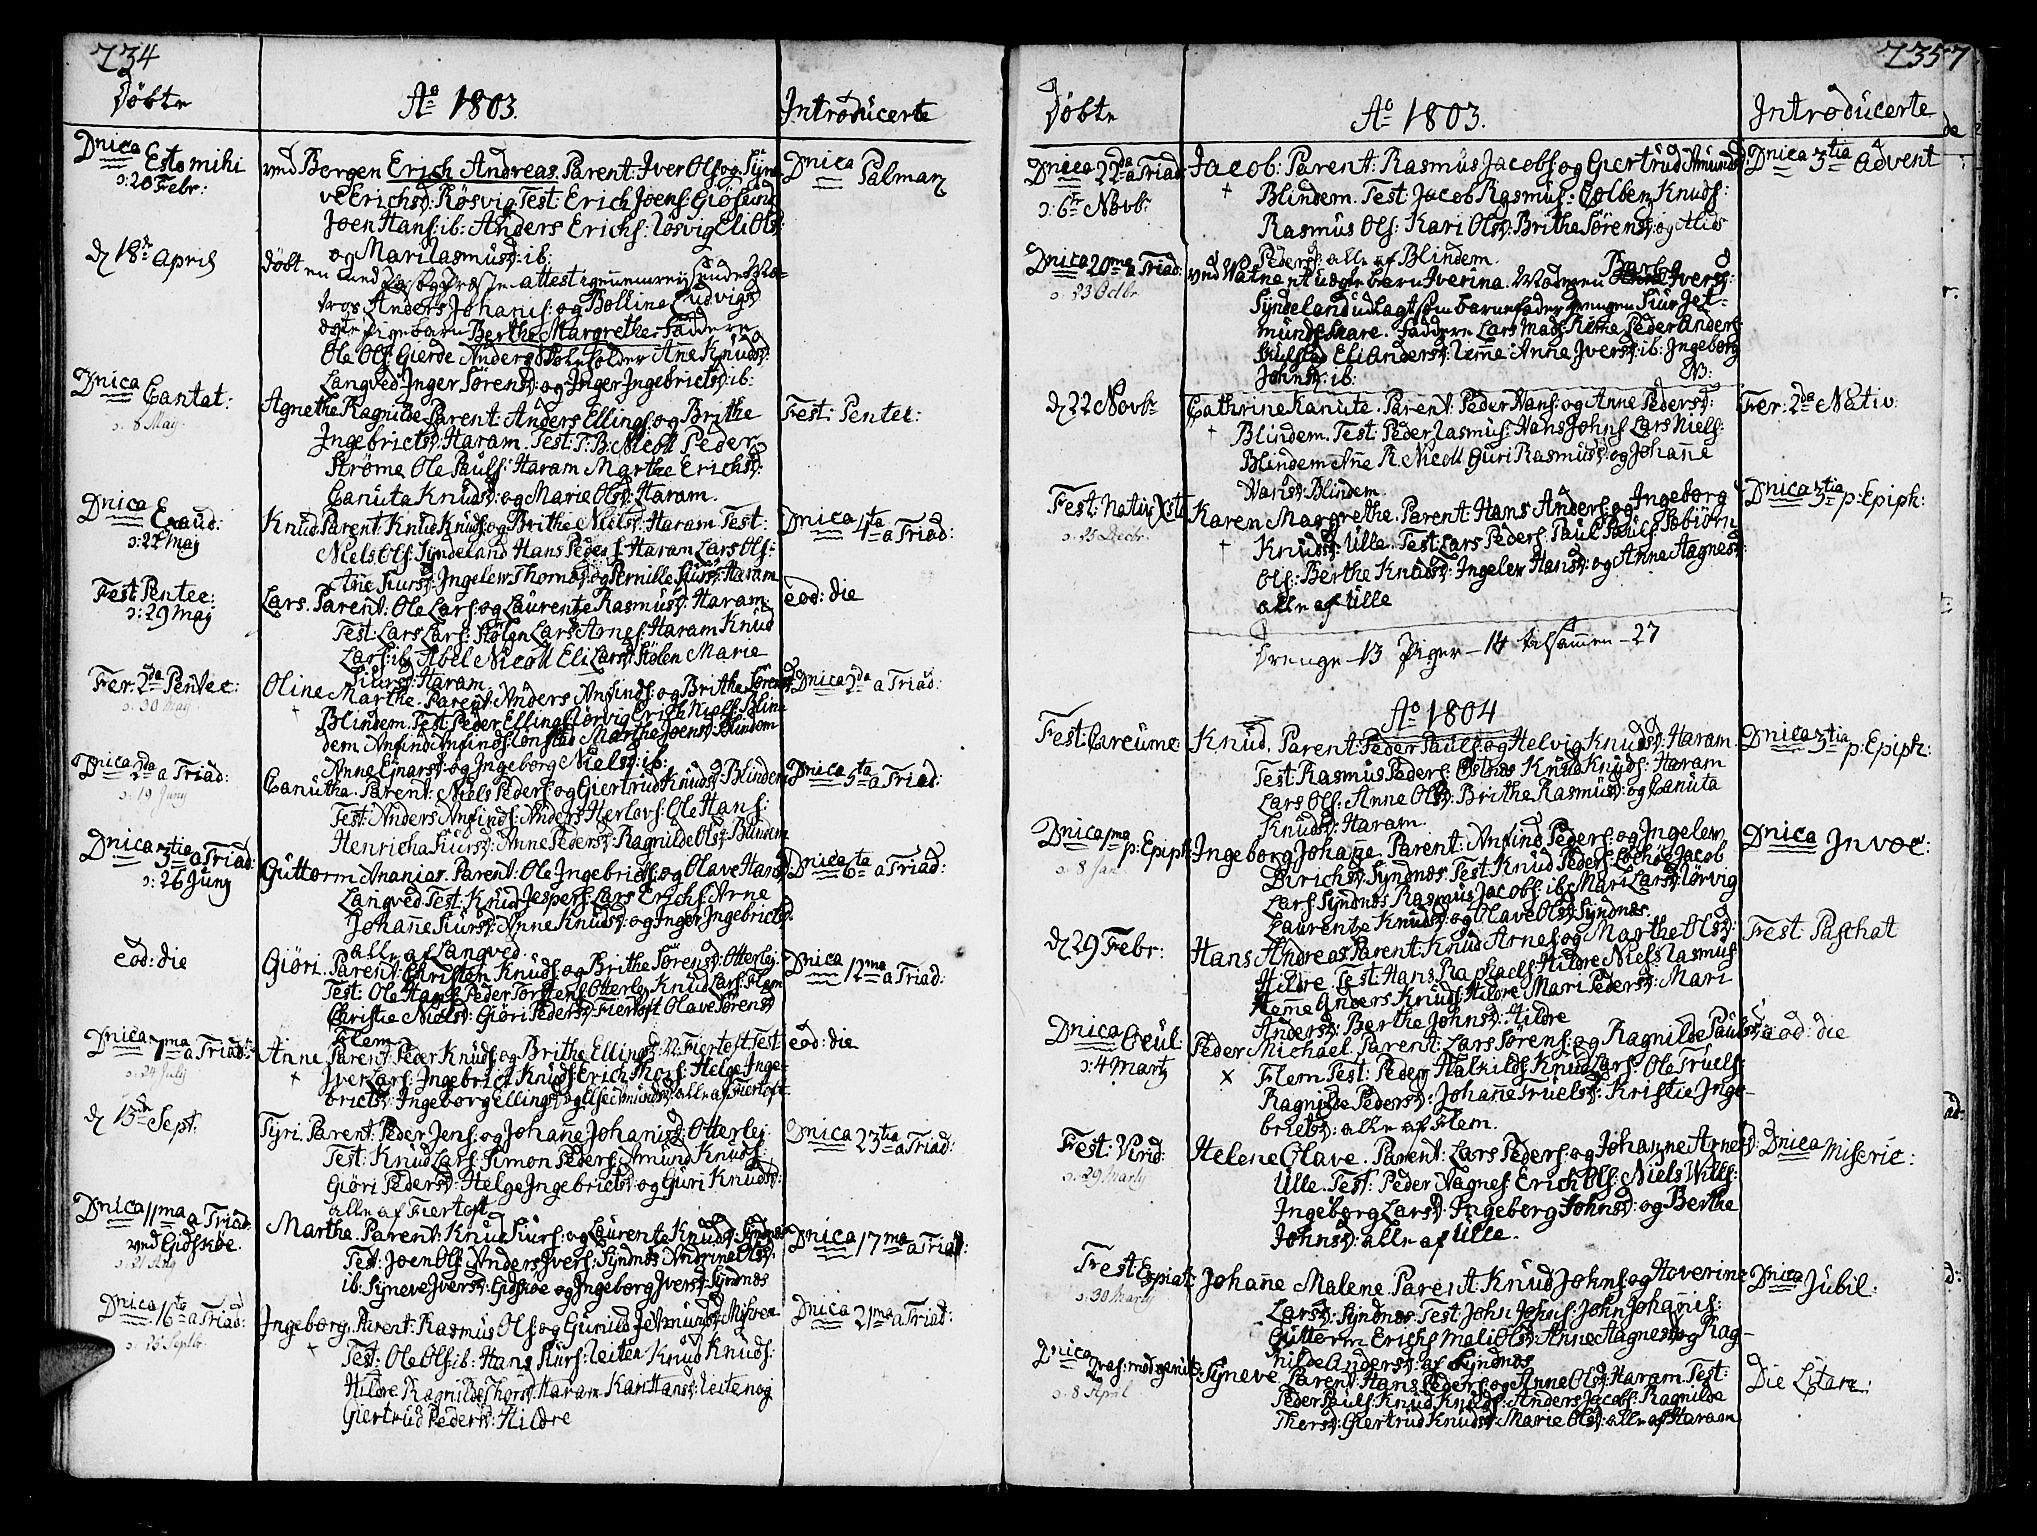 734
Döbte
Ao 1803.
Introducerte
Dnica Estomihi
ɔ: 20 Febr:
ved Borgen Erich Andreas. Parent: Iver Ols: og Syne-
ve Erichsd: Røsvig Test: Erich Joens: Giøsund
Joen Hans: ib: Anders Erichs: Røsvig Eli Olsd:
og Mari Rasmusd: ib:
Dnica Palmar
d 18de April
döbt en med attest
Anders Johanis: og Bolline Ludvigsd
ægte Pigebarn Berthe Margrethe. Faddere
Ole Ols: Gierde Anders Anne Knudsd:
Langved Inger Sörensd: og Inger Ingebrictsd: ib:
Dnica Cantat:
ɔ: 8 May
Agnethe Ragnilde Parent: Anders Ellings: og Brithe
Ingebrictsd: Haram. Test: P: B: Nicoll Peder
Strøme Ole Pauls: Haram Marthe Erichsd:
Canuta Knudsd: og Marie Olsd: Haram.
Fest: Pentec:
Dnica Exaud:
ɔ: 22 May
Knud Parent: Knud Knuds: og Brithe Nielsd: Haram Test:
Niels Ols: Syndeland Hans Peders: Haram Lars Ols:
Ane Siursd: Ingelev Thomasd: og Pernille Siursd: Haram
Dnica 1ta a Triad:
Fest Pentec:
ɔ: 29 May
Lars. Parent: Ole Lars: og Laurentze Rasmusd: Haram
Test: Lars Lars: Stölen Lars Arnes: Haram Knud
Lars: ib: Abel Nicoll Eli Larsd: Stölen Marie
Siursd: Haram
eod: die
Fer: 2da Pentec:
ɔ: 30 May
Oline Marthe. Parent: Anders Anfinds: og Brithe Sörensd
Blindem. Test: Peder Ellings: Lörvig Erich Niels: Blin-
dem Anfind Anfinds: Lonstad Marthe Joensd: Blindem
Anne Ejnarsd: og Ingeborg Nielsd: ib:
Dnica 2da a Triad:
Dnica 2da a Triad:
ɔ: 19 Juny
Canutha. Parent: Niels Peders: og Giertrud Knudsd: Blindem
Test: Anders Anfinds: Anders Herlovs: Ole Hans:
Henricha Siursd: Anne Pedersd: Ragnilde Olsd: Blindem
Dnica 5ta a Triad:
Dnica 3tia a Triad:
ɔ: 26 Juny
Guttorm Ananias. Parent: Ole Ingebricts: og Olave Hansd
Langved Test: Knud Jespers: Lars Erichs: Arne
Johañe Siursd: Anne Knudsd: og Inger Ingebrictsd:
alle af Langved.
Dnica 6ta a Triad:
eod: die
Giöri. Parent: Christen Knuds: og Brithe Sörensd: Otterlej
Test: Ole Hans: Peder Torstens: Otterlej Knud Lars: Flem
Christie Nielsd: Giöri Pedersd: Fiertoft Olave Sörensd
Flem
Dnica 12ma a Triad:
Dnica 7ma a Triad:
ɔ: 24 July
Anne Parent: Peder Knuds: og Brithe Ellingsd: N: Fiertoft Test
Iver Lars: Ingebrict Knuds: Erich Mons: Helge Inge-
brictsd: Ingeborg Ellingsd: og Alle af Fiertoft
eod: die
d 13de Sept.
Tyri. Parent: Peder Jens: og Johañe Johanisd: Otterlej.
Test: Knud Lars: Simon Peders: Amund Knuds:
Giöri Pedersd: Helge Ingebrictsd: og Guri Knudsd:
alle af Fiertoft.
Dnica 23tia a Triad:
Dnica 11ma a Triad.
ved Gidskøe.
ɔ: 21 Aug
Marthe. Parent: Knud Siurs: og Laurentze Knudsd: Syndnes
Test: Joen Ols: Anders Ivers: Syndnes Andrine Olsd:
ib: Syneve Iversd: Gidskøe og Ingeborg Iversd: Syndnes
Dnica 17ma a Triad:
Dnica 16ta a Triad:
ɔ: 25 Septbr
Ingeborg. Parent: Rasmus Ols: og Gunild Jetmundsd: Misven
Test: Ole Ols: ib: Hans Siurs: Leiten Knud Knuds:
Hildre Ragnilde Thorsd: Haram Kari Hansd: Leiten og
Giertrud Pedersd: Hildre
Dnica 21ma a Triad:
7357
Döbte
Ao 1803.
Introducerte
Dnica 22da a Triad:
ɔ: 6te Novbr
Jacob. Parent: Rasmus Jacobs: og Giertrud Amundsd:
Blindem. Test: Jacob Rasmus: Colben Knuds:
Rasmus Ols: Kari Olsd: Brithe Sörensd: og Alid
Pedersd: alle af Blindem.
Dnica 3tia Advent
Dnica 20ma a Triad:
ɔ: 23 Octbr
ved Vatne et uægte barn Iverina. Moderen Iversd:
Syndeland udlagt som barnefader drengen Siur Jet-
munds: Skare. Faddere Lars Mads: Kieme Peder Anders:
Eli Andersd: Anne Iversd: ib: Ingeborg
Johnsd: ib:
NB:
d 22 Novbr
Cathrine Kanute. Parent: Peder Hans: og Anne Pedersd:
Blindem. Test: Peder Rasmus: Hans Johns: Lars Niels:
Blindem Añe R. Nicoll Guri Rasmusd: og Johañe
Hansd: Blindem.
Fer: 2da Nativ:
Fest: Nativ: Xsti
ɔ: 25 Decbr.
Karen Margrethe. Parent: Hans Anders: og Ingeborg
Knudsd: Ulle. Test: Lars Peders: Paul Pauls: Tobiörn
Ols: Berthe Knudsd: Ingelev Hansd: og Anne Hagnesd:
alle af Ulle
Dnica 3tia p: Epiph:
Drenge - 13 Piger - 14 tilsamen - 27
Ao 1804
Fest: Circumc
Knud. Parent: Peder Pauls: og Helvig Knudsd: Haram
Test: Rasmus Peders: Østnes Knud Knuds: Haram
Lars Ols: Anne Olsd: Brithe Rasmusd: og Canuta
Knudsd: Haram.
Dnica 3tia p: Epiph:
Dnica 1ma p: Epiph:
ɔ: 8 Jan.
Ingeborg Johañe. Parent: Anfind Peders: og Ingelev
Dirichsd: Syndnes. Test: Knud Peders: Jacob
Lars: Syndnes Rasmus Jacobs: ib: Mari Larsd: Lörvig
Laurentze Knudsd: og Olave Olsd: Syndnes.
Dnica Invoc:
d 29 Febr:
Hans Andreas Parent: Knud Arnes: og Marthe Olsd:
Hildre. Test: Hans Raphaels: Hildre Niels Rasmus:
Anders Knuds: Hildre Mari Pedersd: Mari
Andersd: Berthe Johnsd: Hildre
Fest: Paschat
Dnica Ocul:
ɔ: 4 Martz
Peder Michael. Parent: Lars Sörens: og Ragnilde Paulsd:
Flem. Test: Peder Knud Lars: Ole Truels:
Ragnilde Pedersd: Johañe Truelsd: Kristie Inge-
brictsd: alle af Flem.
eod: die
Fest: Virid:
ɔ: 29 Marty
Helene Olave. Parent: Lars Peders: og Johanne Arnesd:
Ulle. Test: Peder Hagnes: Erich Ols: Niels Nills:
Ingeborg Larsd: Ingeborg Johnsd: og Berthe
Johnsd: alle af Ulle.
Dnica Miseric:
Fest Expiat:
ɔ: 30 Marty
Johañe Malene Parent: Knud Johns: og Hoverine
Larsd: Syndnes Test: John Johns: John Johañis:
Gutterm Erichs: Mali Olsd: Anne Hagnesd: og Rag-
nilde Andersd: af Syndnes
Dnica Jubil:
Dnica
ɔ: 8 April
Syneve Parent: Hans Peders: og Anne Olsd: Haram. Test:
Peder Pauls: Knud Knuds: Anders Jacobs: Ragnilde
Thorsd: Giertrud Knudsd: Marie Olsd: alle af Haram
Die Litare: